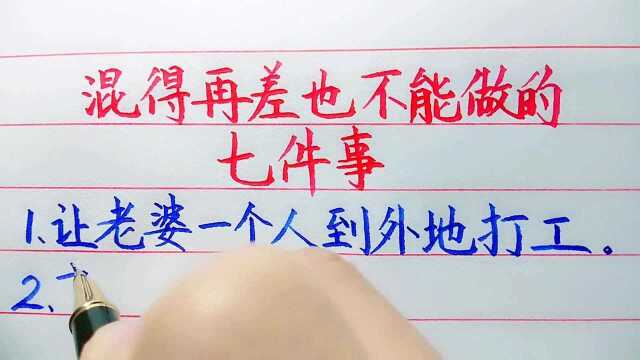 混得再差也不能做的
七件事
1.让老婆一个人到外地打工。
2、